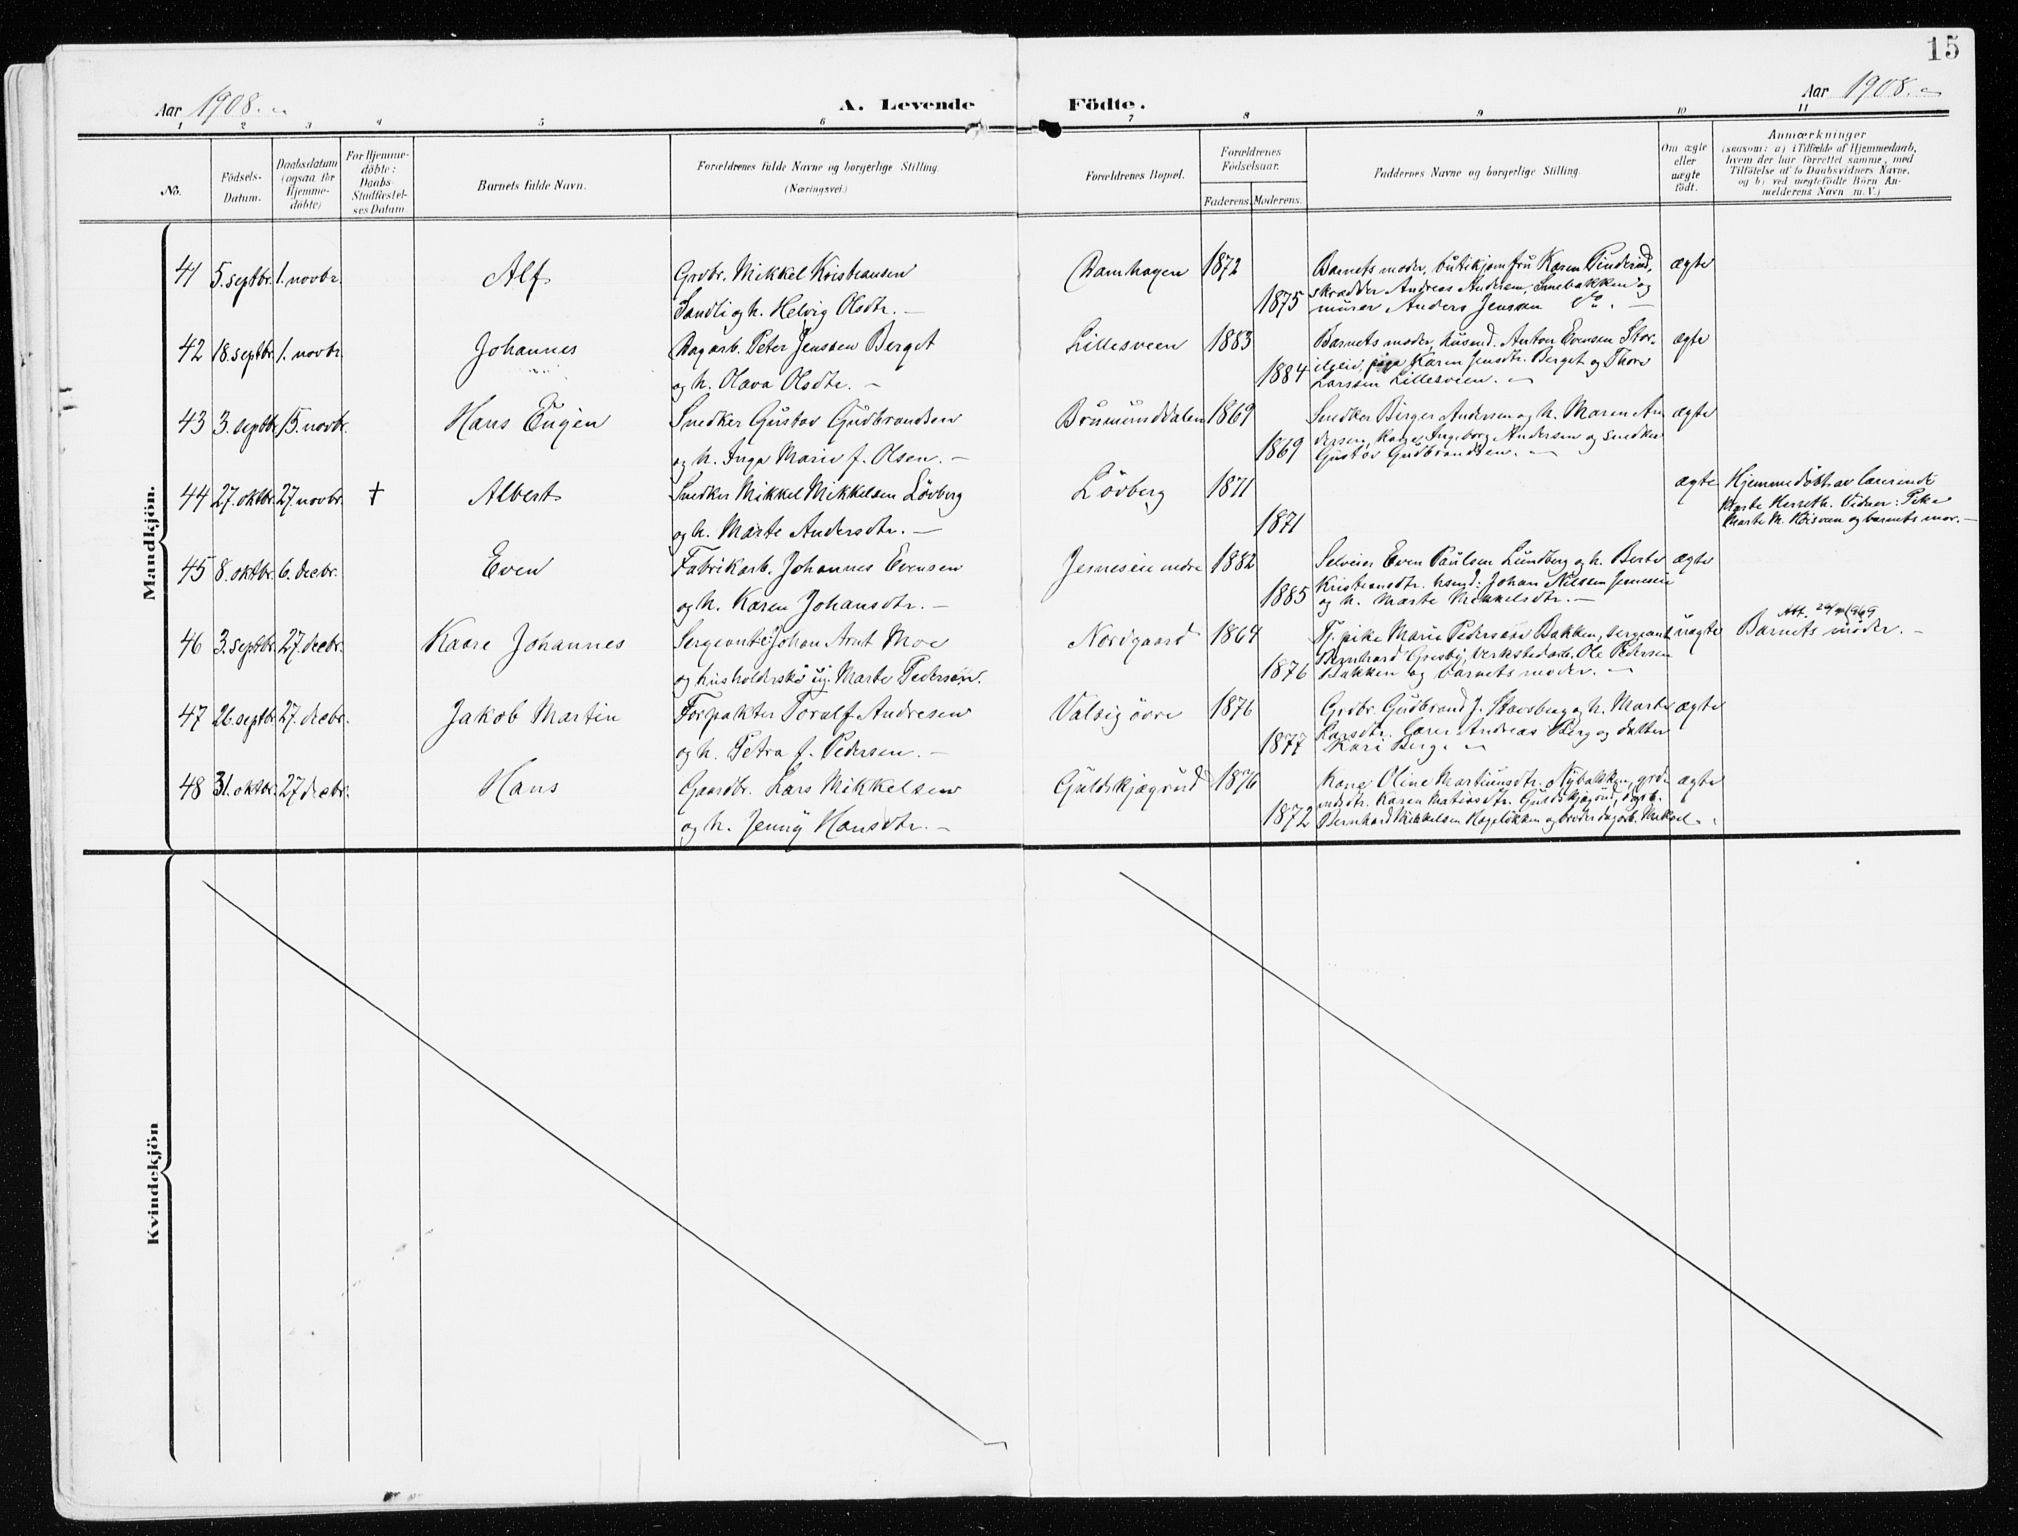 15
Aar 1908.
A. Levende Födte.
Aar 1908.
1 2 3 4 5 6 7 8 9 10 11
No.
Födsels-Datum.
Daabsdatum (ogsaa for Hjemme-döbte)
For Hjemme-döbte: Daabs-Stadfæstel-ses Datum
Barnets fulde Navn.
Forældrenes fulde Navne og borgerlige Stilling. (Næringsvei.)
Forældrenes Bopæl.
Forældrenes Födselsaar.
Faderens. Moderens.
Faddernes Navne og borgerlige Stilling.
Om ægte eller uægte födt.
Anmærkninger
(saasom: a) i Tilfælde af Hjemmedaab,
hvem der har forrettet samme, med
Tilföielse af to Daabsvidners Navne,
og b) ved uægtefödte Börn An-
melderens Navn m. V.)
Mandkjön.
41 5. septbr. 1. novbr. Alf Grdbr. Mikkel Kristiansen Ramhagen 1872 Barnets moder, butikjomfru Karen Pinderud, ægte
Sandli og h. Helvig Olsdtr. — 1875 skrædder Andreas Andersen, Smebakken og
murer Anders Jensen do. —
42 18. septbr. 1. novbr. Johannes Dagarb. Peter Jensen Berget Lillesveen 1883 Barnets moder, husmd. Anton Evensen Stor- ægte
og h. Olava Olsdtr. — 1884 pige Karen Jensdtr. Berget og Thore
Larssen Lillesveen. —
43 3. septbr. 15. novbr. Hans Eugen Snedker Gustav Gudbrandsen Brumunddalen 1869 Snedker Birger Andersen og h. Maren An- ægte
og h. Inga Marie f. Olsen. — 1869 dersen, Kone Ingeborg Andersen og snedker
Gustav Gudbrandsen. —
44 27. oktbr. 27. novbr. † Albert Snedker Mikkel Mikkelsen Lövberg Lövberg 1871 ægte Hjemmedöbt av lærerinde
og h. Marte Andersdtr. — 1871 Marte Herseth. Vidner: Pike
Marte M. og barnets mor. —
45 8. oktbr. 6. decbr. Even Fabrikarb. Johannes Evensen Jesneseie nedre 1882 Selveier Even Paulsen Lundberg og h. Berte ægte
og h. Karen Johansdtr. — 1885 Kristiansdtr. husmd: Johan Nilssen Jesneseie
og h. Marte Mikkelsdtr. —
46 3. septbr. 27. decbr. Kaare Johannes Sergeant Johan Arnt Moe Nordgaard 1864 Tj. pike Marie Pedersen Bakken, sergeant uægte Barnets moder. —
og husholderske ug. Marte Pedersen. 1876 Bernhard Gresby, verkstedarb. Ole Pedersen
Bakken og barnets moder. —
47 26. septbr. 27. decbr. Jakob Martin Forpakter Toralf Andresen Valsig övre 1876 Grdbr. Gudbrand J. Stavsberg og h. Marte ægte
og h. Petra f. Pedersen. — 1877 Larsdtr. lærer Andreas Berg og datter
Kari Berg. —
48 31. oktbr. 27 decbr. Hans Gaardbr. Lars Mikkelsen Guldskjægrud 1876 Kone Oline Martinusdtr. Nybakken, grd- ægte
og h. Jenny Hansdtr. — 1872 mdsdtr. Karen Matiasdtr. Guldskjægrud, dagarb.
Bernhard Mikkelsen Hagelökken og broder dagarb. Mikael
Kvindekjön